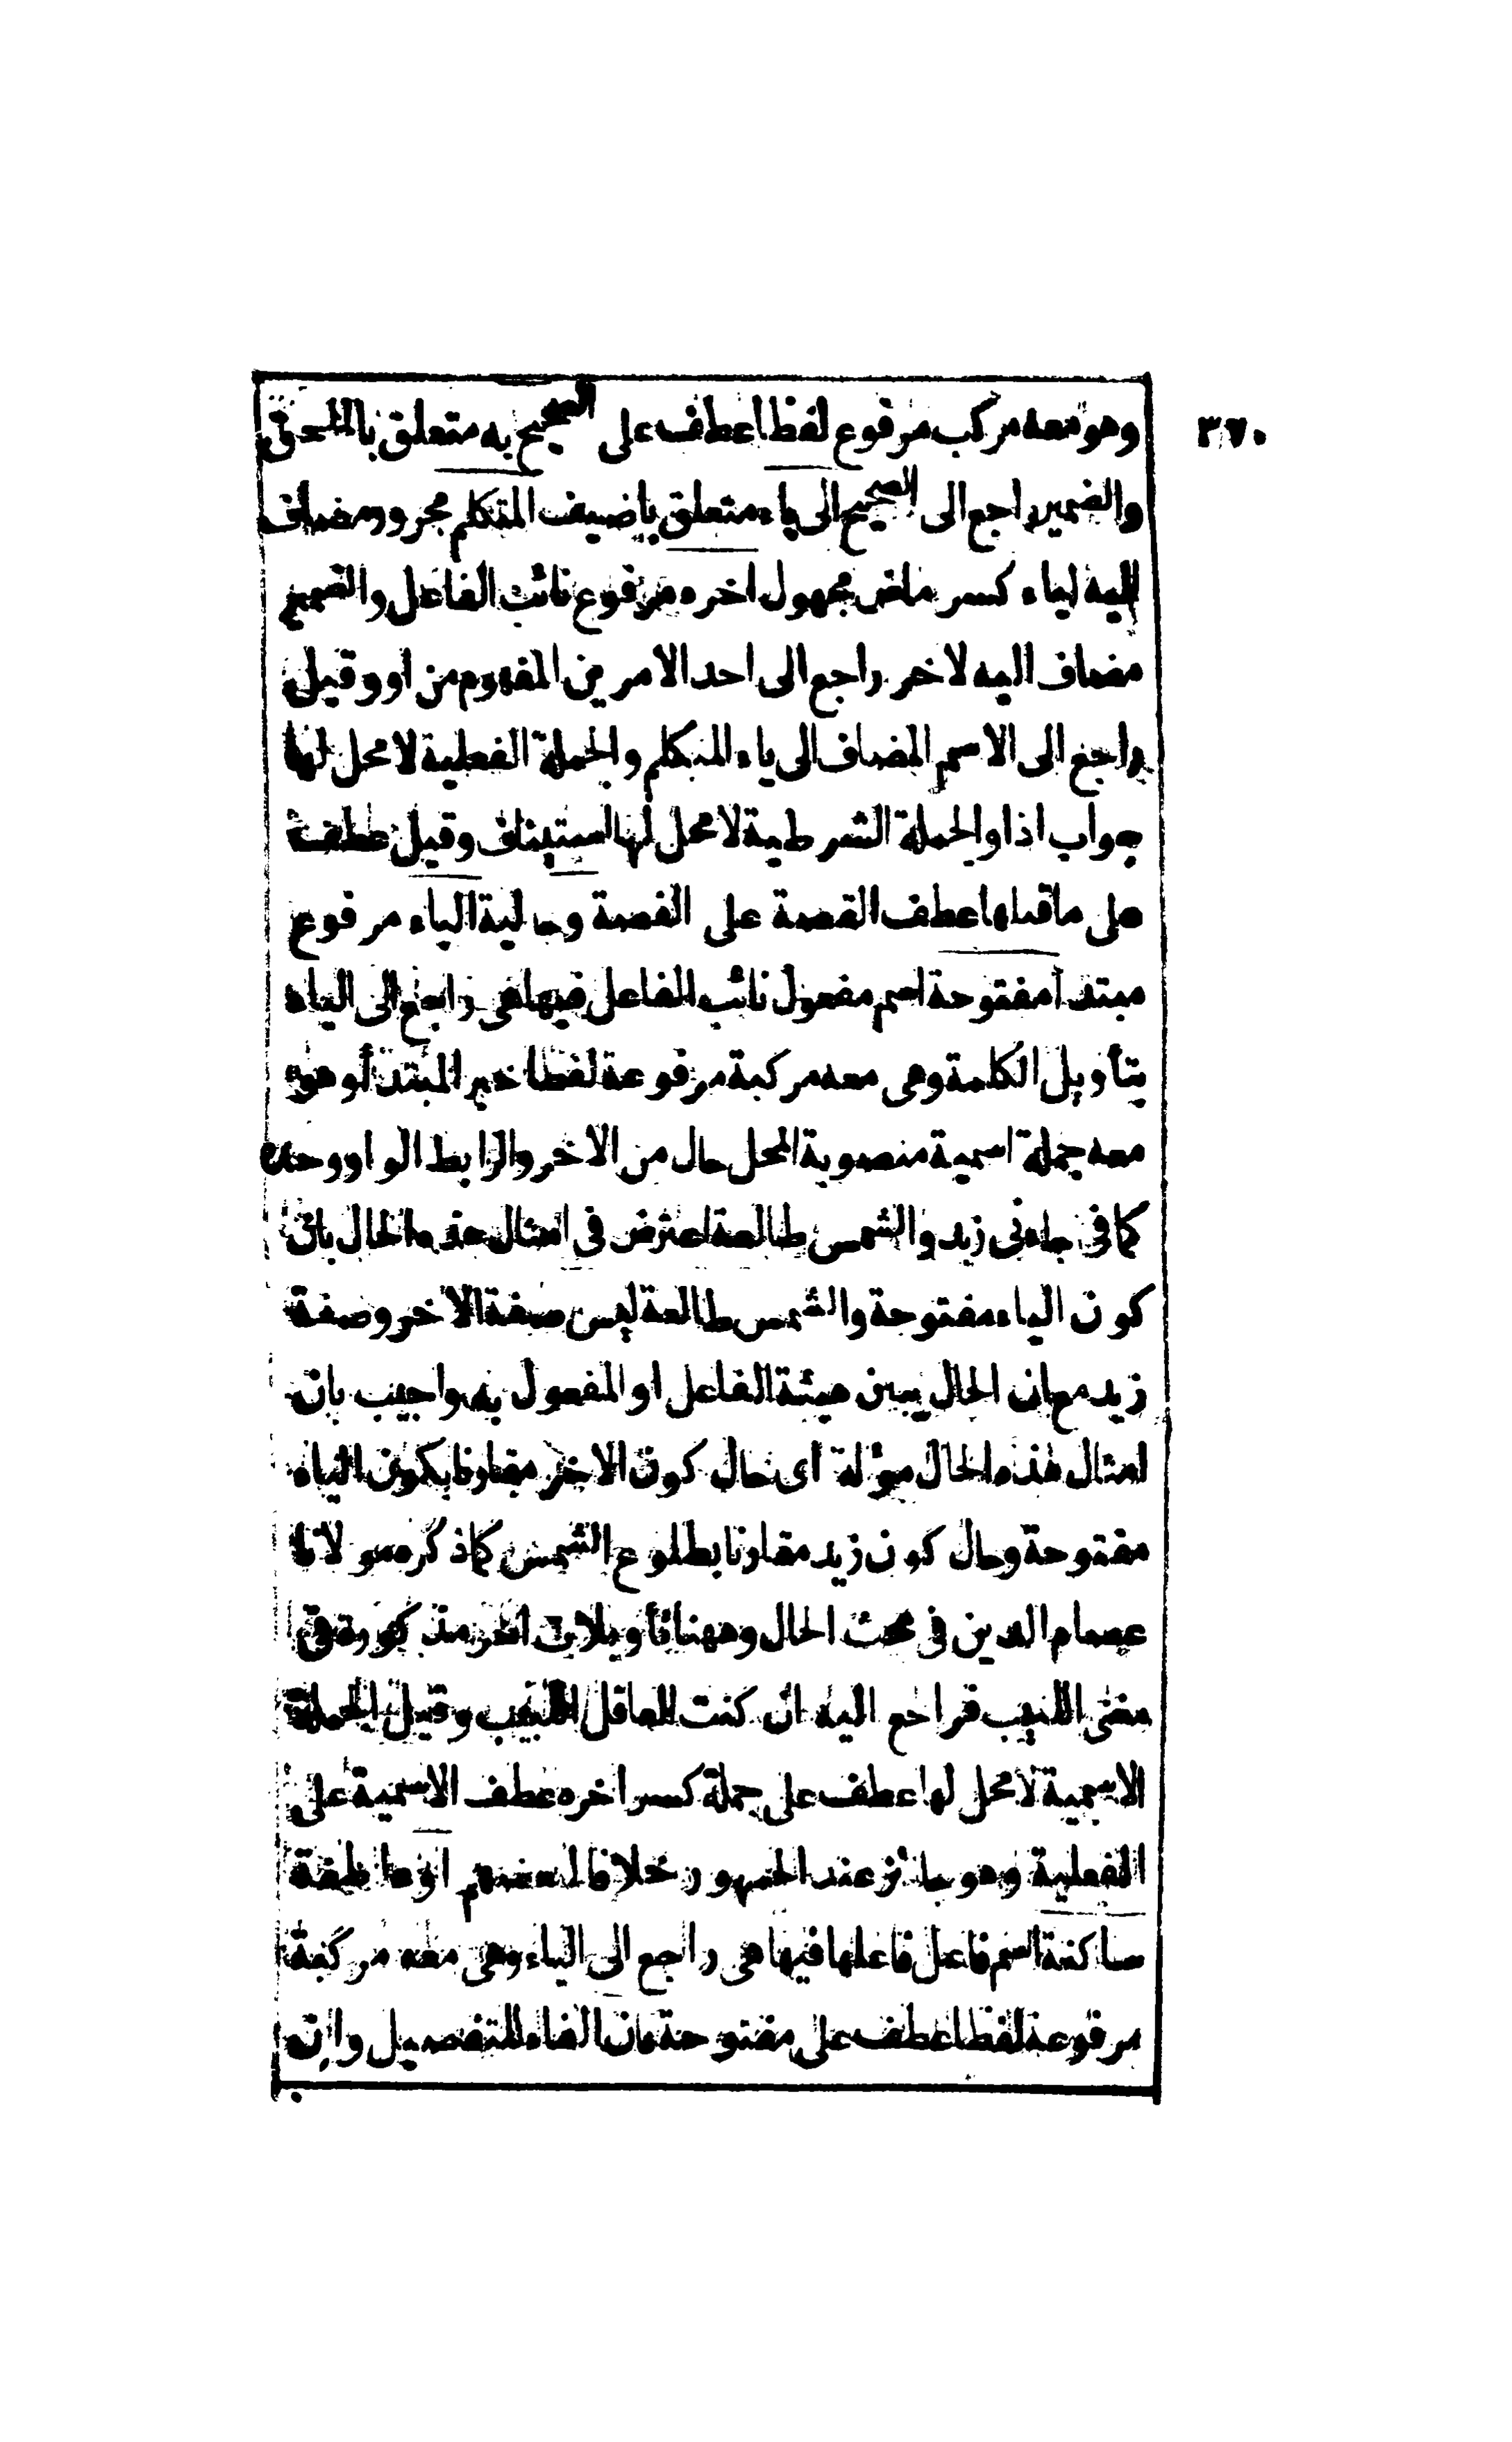 ٣٧٠
وهو معه مركب مرفوع لفظا عطف على الصحيح به متعلق بالملحق
والضمير راجع الى الصحيح الى ياء متعلق باضيف المتكلم مجرور مضاف
اليه لياء كسر ماض مجهول اخره مرفوع نائب الفاعل والضمير
مضاف اليه لاخر راجع الى احد الامرين المفهوم من او وقيل
راجع الى الاسم المضاف الى ياء المتكلم والجملة الفعلية لا محل لها
جواب اذا والجملة الشرطية لا محل لها استيناف وقيل عطف
على ما قبلها عطف القصة على القصة وحالية الياء مرفوع
مبتدأ مفتوحة اسم مفعول نائب الفاعل فيها هى راجع الى الياء
بتأويل الكلمة وهى معه مركبة مرفوعة لفظا خبر المبتدأ وهو
معه جملة اسمية منصوبة المحل حال من الاخر والرابط الواو وحده
كما فى جاءنى زيد والشمس طالعة اعترض فى امثال هذه الحال بان
كون الياء مفتوحة والشمس طالعة ليس صفة الاخر وصفة
زيد مع ان الحال يبين هيئة الفاعل او المفعول به واجيب بان
امثال هذه الحال مؤلة اى حال كون الاخر مقارنا بكون الياء
مفتوحة وحال كون زيد مقارنا بطلوع الشمس كما ذكره مولانا
عصام الدين فى بحث الحال وههنا تأويلات اخر مذكورة فى
مغنى اللبيب فراجع اليه ان كنت العاقل اللبيب وقيل الجملة
الاسمية لا محل لها عطف على جملة كسر اخره عطف الاسمية على
الفعلية وهو جائز عند الجمهور خلافا لبعضهم او عاطفة
ساكنة اسم فاعل فاعلها فيها هى راجع الى الياء وهى معه مركبة
مرفوعة لفظا عطف على مفتوحة فان الفاء للتفصيل وان